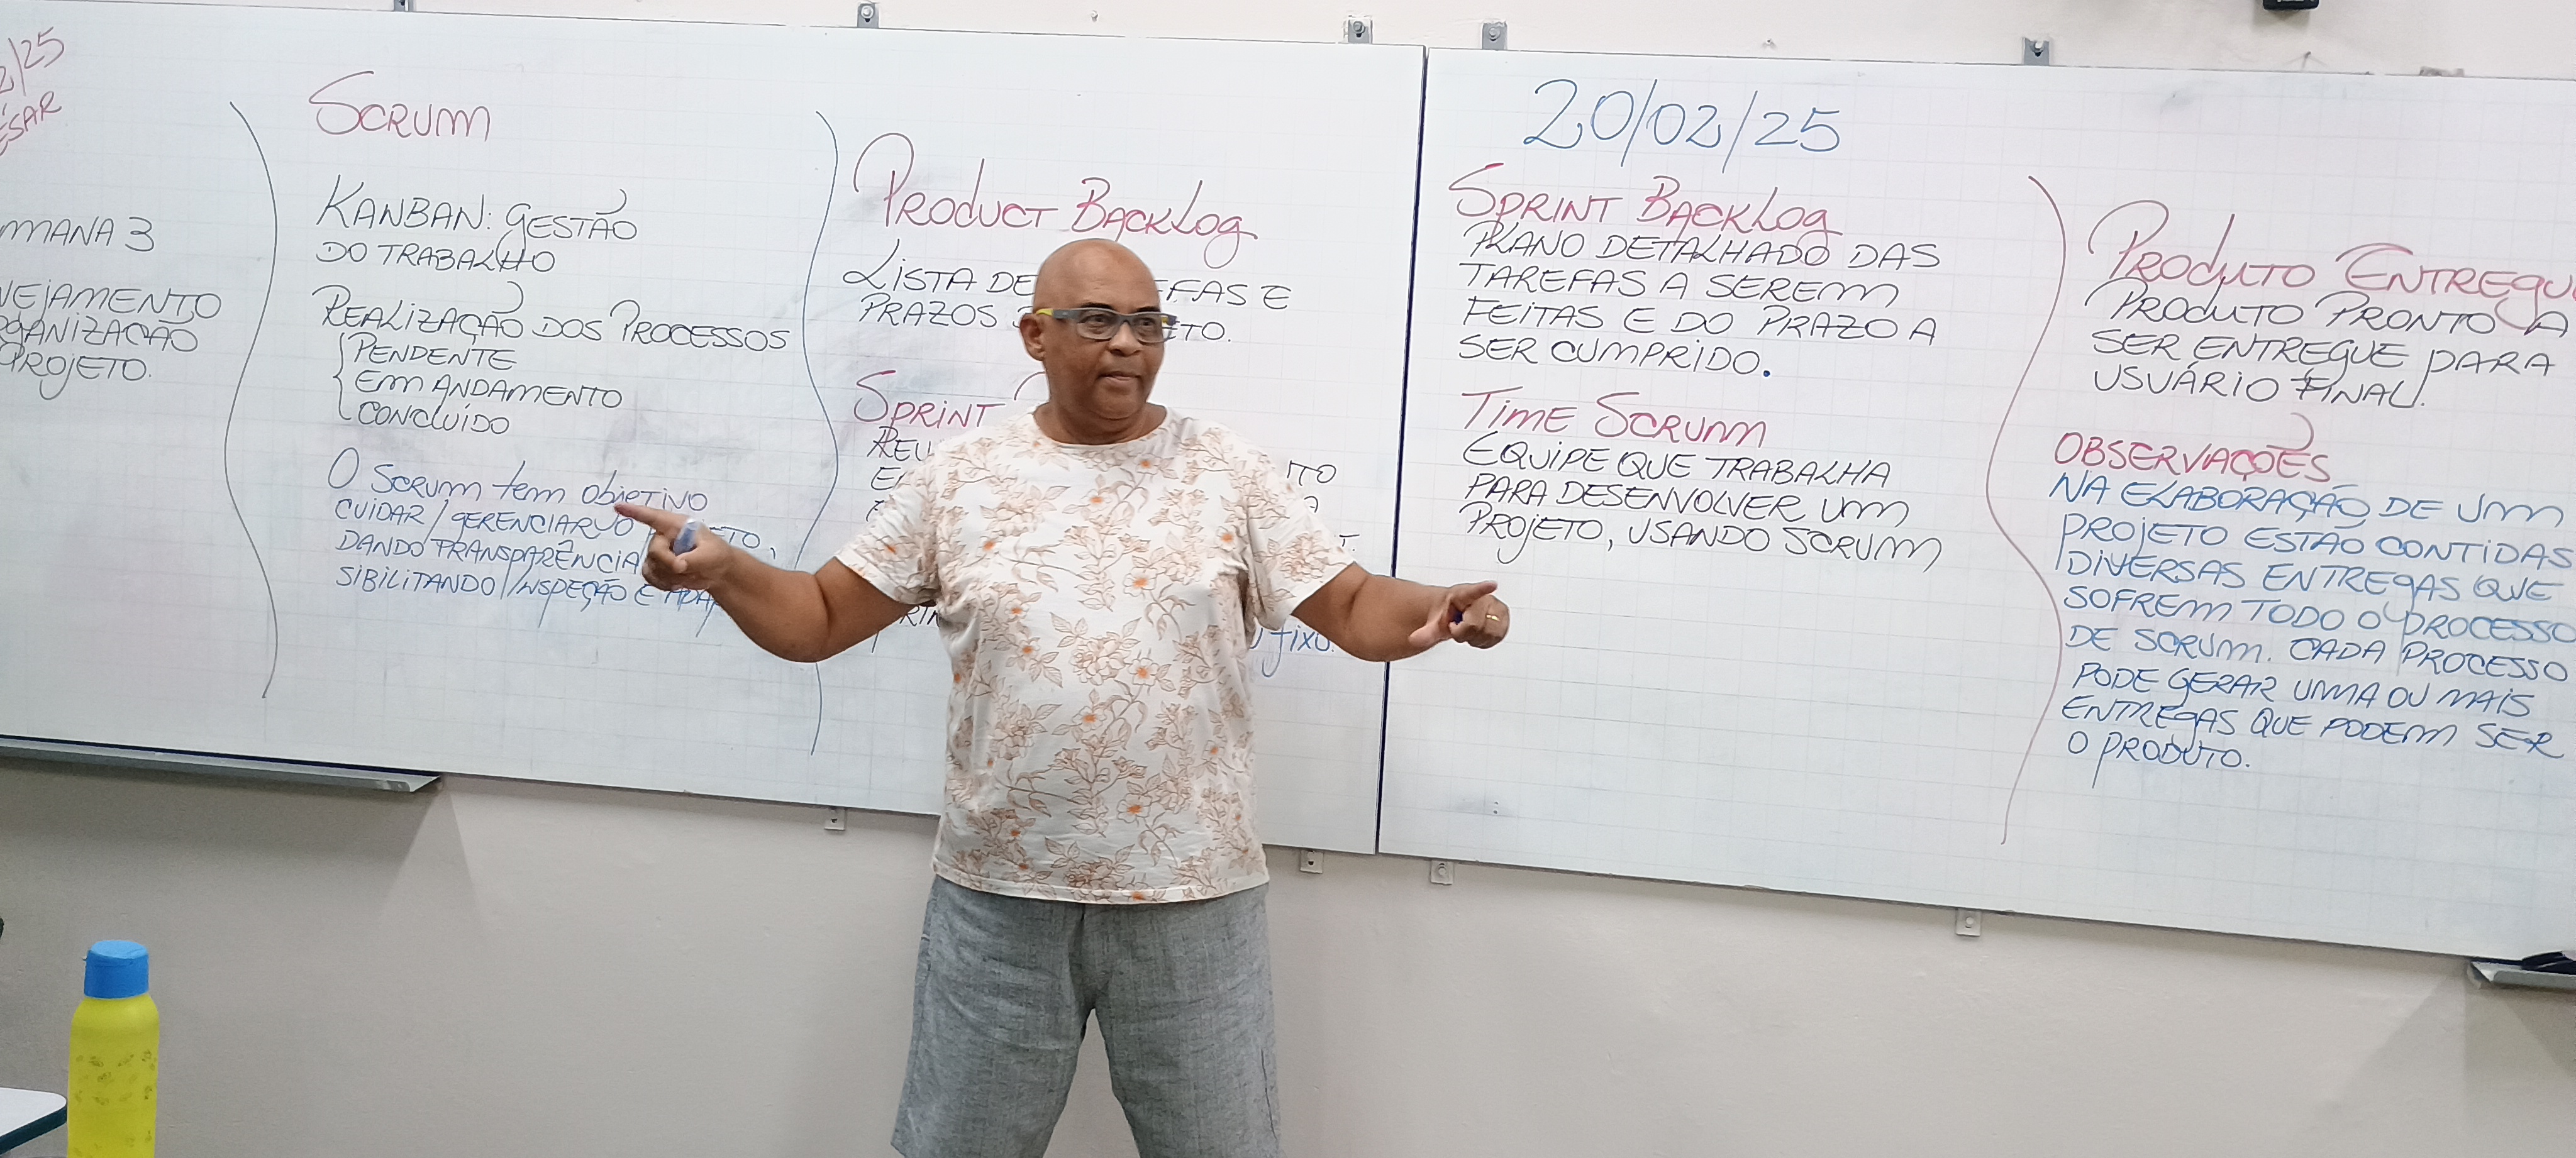 2/25
ÉSAR
MANA 3
NEJAMENTO
GANIZAÇÃO
PROJETO.
SCRUM
KANBAN: GESTÃO
DO TRABALHO
REALIZAÇÃO DOS PROCESSOS
PENDENTE
EM ANDAMENTO
CONCLUÍDO
O SCRUM tem objetivo
CUIDAR/GERENCIAR O
DANDO TRANSPARÊNCIA
SIBILITANDO INSPEÇÃO E
PRODUCT BACKLOG
LISTA DE
PRAZOS
SPRINT
fixo.
20/02/25
SPRINT BACKLOG
PLANO DETALHADO DAS
TAREFAS A SEREM
FEITAS E DO PRAZO A
SER CUMPRIDO.
TIME SCRUM
EQUIPE QUE TRABALHA
PARA DESENVOLVER UM
PROJETO, USANDO SCRUM
PRODUTO ENTREGU
PRODUTO PRONTO A
SER ENTREGUE PARA
USUÁRIO FINAL.
OBSERVAÇÕES
NA ELABORAÇÃO DE UM
PROJETO ESTÃO CONTIDAS
DIVERSAS ENTREGAS QUE
SOFREM TODO O PROCESSO
DE SCRUM. CADA PROCESSO
PODE GERAR UMA OU MAIS
ENTREGAS QUE PODEM SER
O PRODUTO.